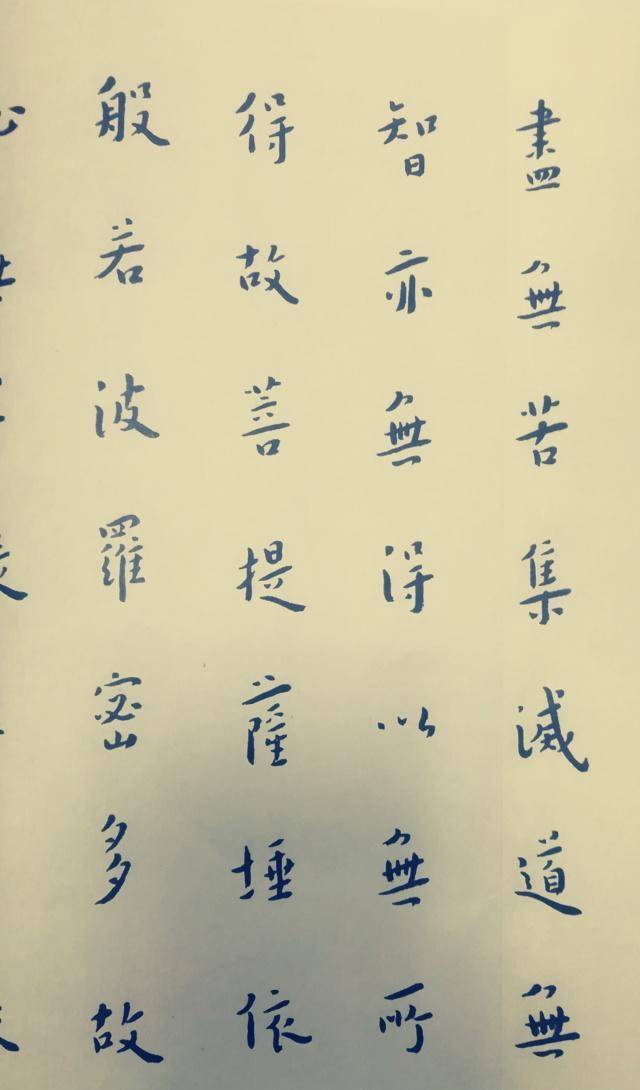 盡無苦集滅道無
智亦無得以無所
得故菩提薩埵依
般若波羅蜜多故